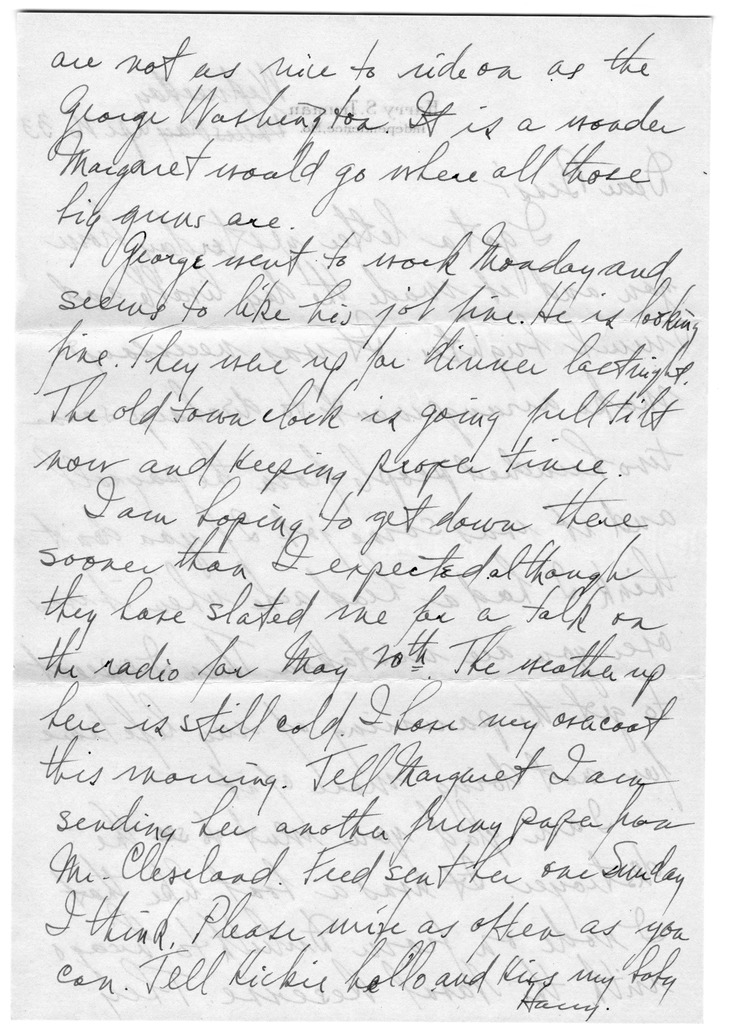 are not as nice to ride on as the
George Washington. It is a wonder
Margaret would go where all those
big guns are.
George went to work Monday and
seems to like his job fine. He is looking
fine. They were up for dinner last night.
The old town clock is going full tilt
now and keeping proper time.
I am hoping to get down there
sooner than I expected although
they have slated me for a talk on
the radio for May 10th. The weather up
here is still cold. I have my overcoat
this morning. Tell Margaret I am
sending her another funny paper from
Mr. Cleveland. Fred sent her one Sunday
I think. Please write as often as you
can. Tell hello and Kiss my baby
Harry.